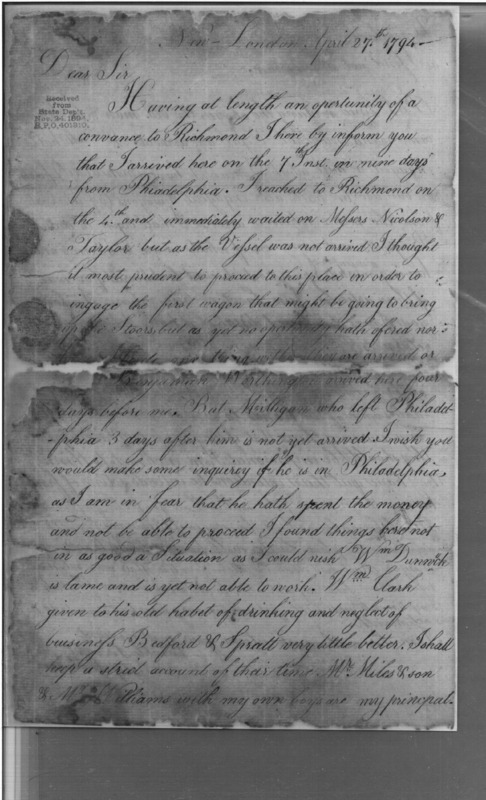 New-London April 27th 1794
Dear Sir
Received
from
State Dep't.
Nov. 24. 1894.
Having at length an oportunity of a
convance to Richmond I here by inform you
that I arrived here on the 7th Inst. in nine days
from Phiadelphia. I reached to Richmond on
the 4th and immediately waited on Messrs Nicolson &
Taylor but as the Vessel was not arrived I thought
it most prudent to proceed to this place in order to
ingage the first wagon that might be going to bring
up the Stoers but as yet no opertunity hath offered nor
they are arived or
arived here four
days before me. But Mulligan who left Philadel-
-phia 3 days after him is not yet arrived I wish you
would make some inquirey if he is in Philadelphia,
as I am in fear that he hath spent the money
and not be able to proceed I found things here not
in as good a Situation as I could wish Wm Dunwick
is lame and is yet not able to work. Wm Clark
given to his old habit of drinking and neglect of
buisiness Bedford & Spratt very little better. I shall
keep a strict account of thair time Mr. Miles & son
& Williams with my own boys are my principal